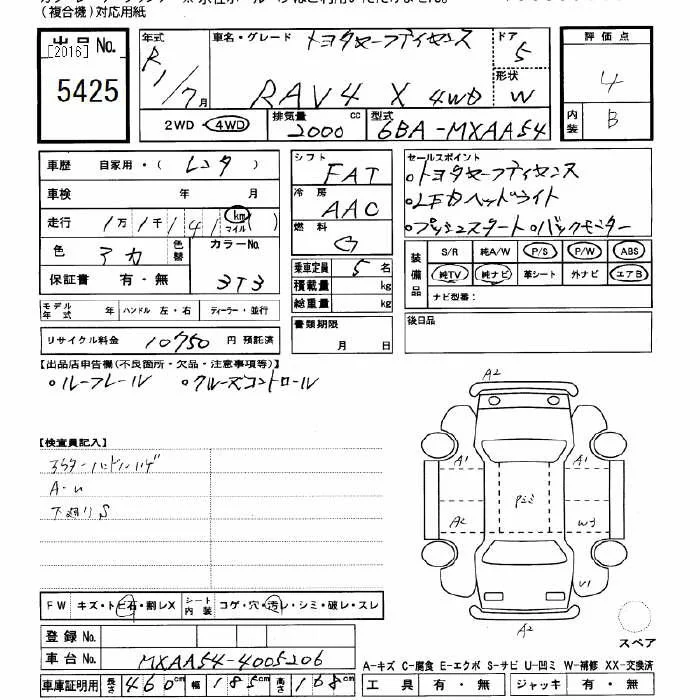 (複合機)対応用紙
出品 No.
[2016]
5425
年式
R1/7月
車名・グレード
トヨタセーフティセンス
RAV4 X 4WD
ドア
5
形状
W
2WD・4WD
排気量 cc
2000
型式
6BA-MXAA54
評価点
4
内装
B
車歴 自家用・( レンタ )
車検 年 月
走行 1万1千141 km マイル
色 アカ
色替
カラーNo.
3T3
保証書 有・無
モデル年式 年
ハンドル 左・右
ディーラー・並行
リサイクル料金 10750円 預託済
シフト
FAT
冷房
AAC
燃料
G
乗車定員 5名
積載量 kg
総重量 kg
書類期限
月 日
セールスポイント
・トヨタセーフティセンス
・LEDヘッドライト
・プッシュスタート ・バックモニター
装備品
S/R 純A/W P/S P/W ABS
純TV 純ナビ 革シート 外ナビ エアB
ナビ型番:
後日品
【出品店申告欄(不良箇所・欠品・注意事項等)】
・ルーフレール ・クルーズコントロール
【検査員記入】
A-U
下廻りS
FW キズ・トビ石・割レX
シート内装 コゲ・穴・汚レ・シミ・破レ・スレ
登録 No.
車台 No. MXAA54-4005206
車庫証明用 長さ 460cm 幅 185cm 高さ 168cm
A2
A1
A1
A2
W3
V1
A2
スペア
A-キズ C-腐食 E-エクボ S-サビ U-凹ミ W-補修 XX-交換済
工具 有・無 ジャッキ 有・無